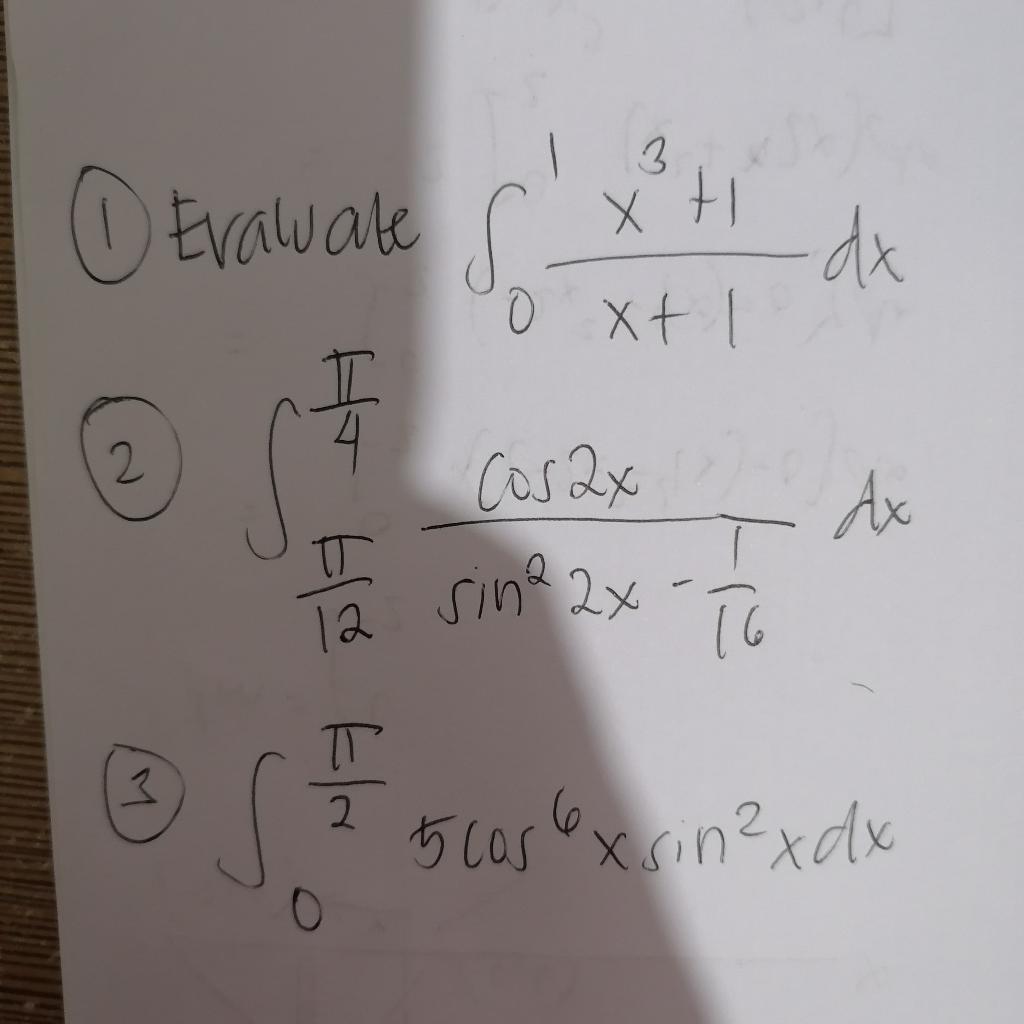 ① Evaluate ∫₀¹ (x³+1)/(x+1) dx
② ∫_{π/12}^{π/4} (cos2x)/(sin²2x - 1/16) dx
③ ∫₀^{π/2} 5cos⁶xsin²xdx